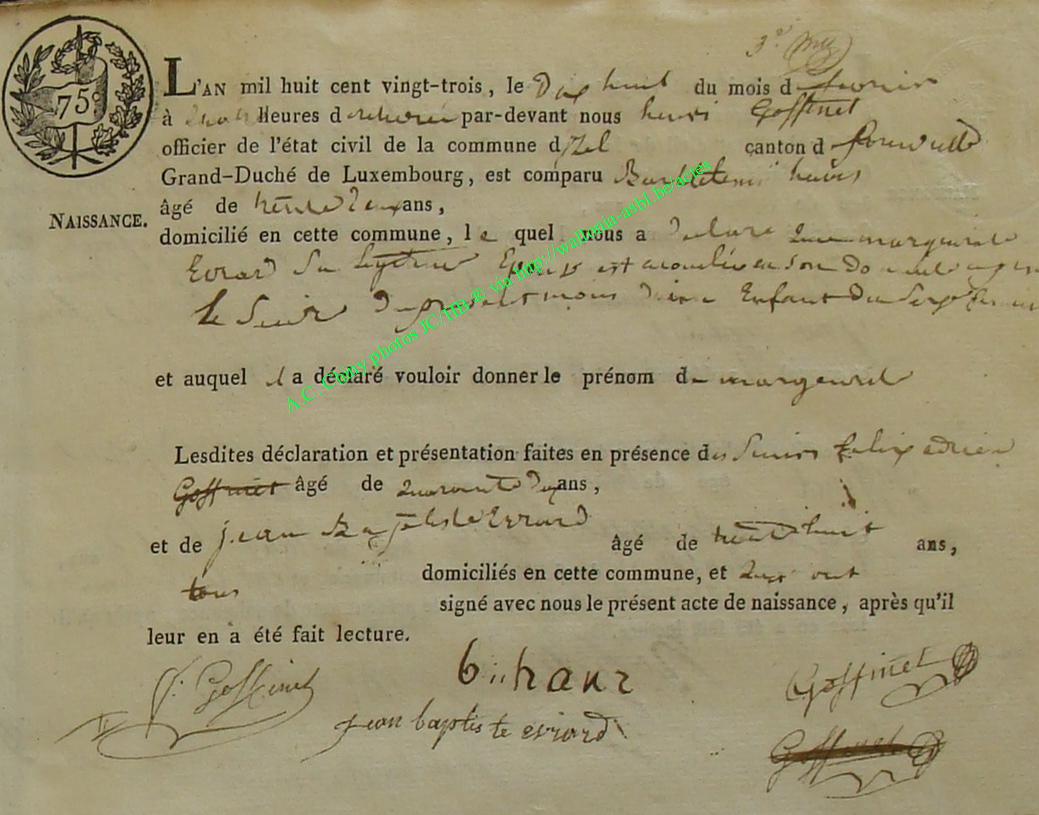 3e
75c
L'AN mil huit cent vingt-trois, le Dix huit du mois d fevrier
à Heures d par-devant nous henri Goffinet
officier de l'état civil de la commune d'izel canton d florenville
Grand-Duché de Luxembourg, est comparu
NAISSANCE.
âgé de trente deux ans,
domicilié en cette commune, le quel nous a declaré que margeurite
Evrard Sa legitime Epouse est acouchée en son domicile
le Seize du present mois d'un Enfant du Sexe
et auquel il a déclaré vouloir donner le prénom de margeurite
Lesdites déclaration et présentation faites en présence des Sieurs felix adrien
Goffinet âgé de quarante deux ans,
et de jean Baptiste Evrard âgé de trente huit ans,
domiciliés en cette commune, et qui ont
tous signé avec nous le présent acte de naissance, après qu'il
leur en a été fait lecture.
f: Goffinet
Goffinet
jean baptiste evrard
Goffinet
A.C. Chiny photos JC/HB © via http://wallonia-asbl.be/actes